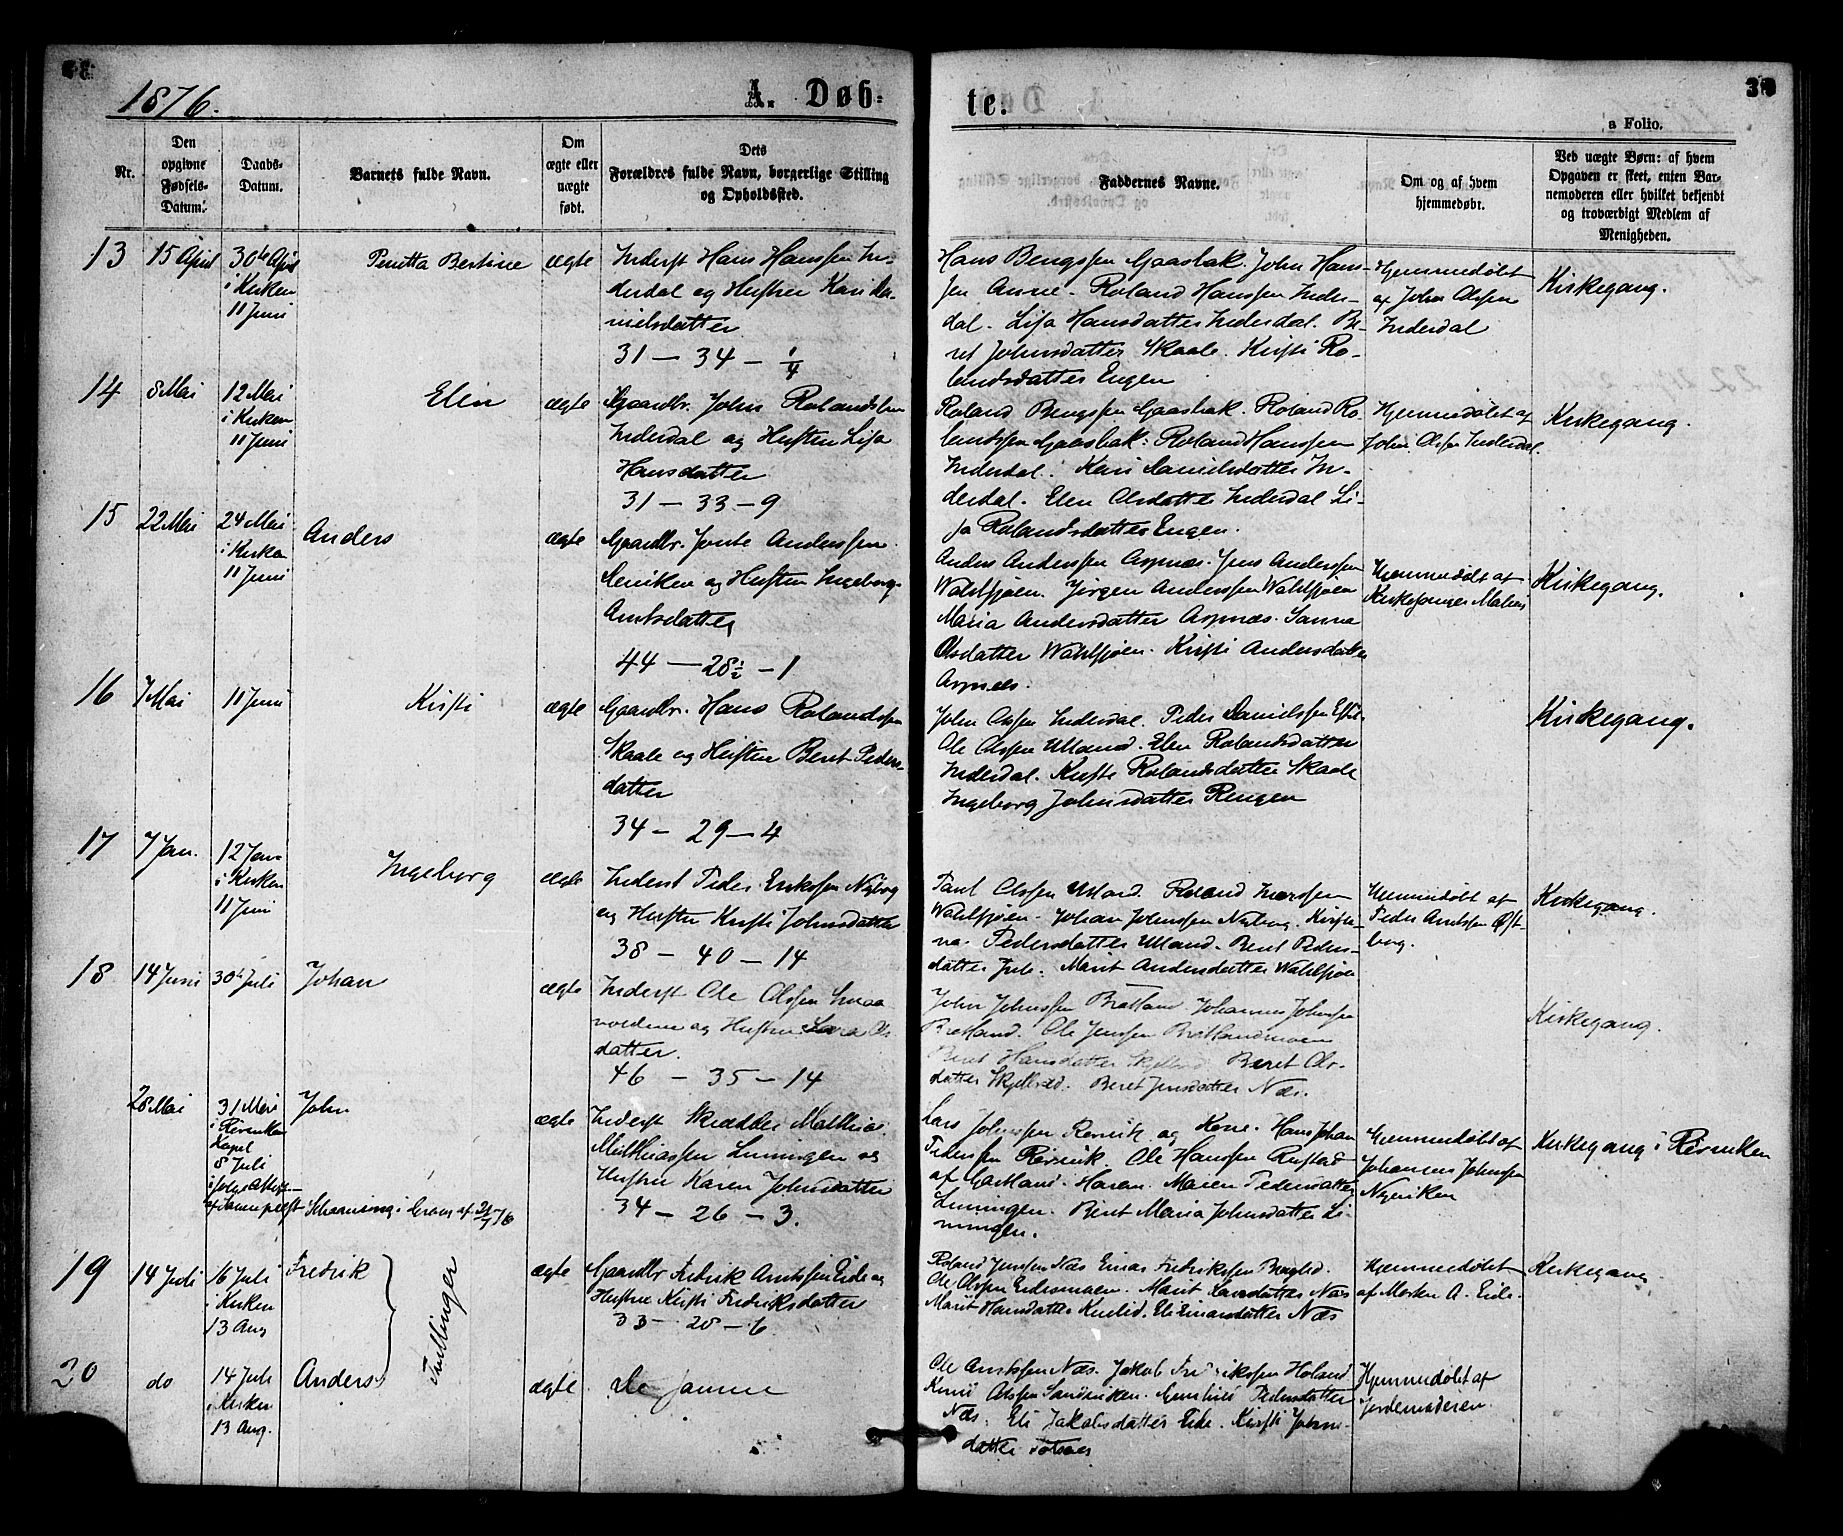 1876.
A. Døb-
te.
39
a Folio.
Nr.
Den
opgivne
Fødsels-
Datum.
Daabs-
Datum.
Barnets fulde Navn.
Om
ægte eller
uægte
født.
Dets
Forældres fulde Navn, borgerlige Stilling
og Opholdssted.
Faddernes Navne.
Om og af hvem
hjemmedøbt.
Ved uægte Børn: af hvem
Opgaven er skeet, enten Bar-
nemoderen eller hvilket bekjendt
og troværdigt Medlem af
Menigheden.
13
15 April
30te April
i Kirken
11 Juni
Bertine
ægte
Inderst Hans Hanssen In-
derdal og Hustru Kari Da-
nielsdatter
31 — 34 — 1/4
Hans Bengssen Gaasbak. John Hans-
sen Roland Hanssen Inder-
dal. Lisa Hansdatter Inderdal. Be-
ret Johnsdatter Skaale. Kirsti Ro-
landsdatter Engen
Hjemmedøbt
af John Olssen
Inderdal
Kirkegang.
14
8 Mai
12 Mai
i Kirken
11 Juni
Elen
ægte
Gaardbr. John Rolandssen
Inderdal og Hustru Lisa
Hansdatter
31 — 33 — 9
Roland Bengssen Gaasbak. Roland Ro-
landssen Gaasbak. Roland Hanssen
Inderdal. Kari Danielsdatter In-
derdal. Elen Olsdatter Inderdal Li-
sa Rolandsdatter Engen.
Hjemmedøbt af
John Olssen Inderdal.
Kirkegang.
15
22 Mai
24 Mai
i Kirken
11 Juni
Anders
ægte
Gaardbr. Anderssen
og Hustru Ingeborg
Arntsdatter
44 — 28½ — 1
Anders Anderssen Aspnæs. Jens Anderssen
Wahlsjøen. Jørgen Anderssen Wahlsjøen
Maria Andersdatter Aspnæs. Sanna
Olsdatter Wahlsjøen. Kirsti Andersdatter
Aspnæs.
Hjemmedøbt af
Kirkesanger
Kirkegang.
16
7 Mai
11 Juni
Kirsti
ægte
Gaardbr. Hans Rolandssen
Skaale og Hustru Beret Peders-
datter
34 — 29 — 4
John Olssen Inderdal. Peder Danielssen
Ole Olssen Uland. Elen Rolandsdatter
Inderdal. Kirsti Rolandsdatter Skaale
Ingeborg Johnsdatter Rengen
Kirkegang.
17
7 Jan.
12 Jan
i Kirken
11 Juni
Ingeborg
ægte
Inderst Peder Erikssen Nyborg
og Hustru Kirsti Johnsdatter
38 — 40 — 14
Olssen Uland. Roland Larssen
Wahlsjøen. Johan Johnssen Nyborg. Kirsti-
na Pedersdatter Uland. Beret Peders-
datter Marit Andersdatter Wahlsjøen
Hjemmedøbt af
Peder Arntssen Øst-
borg.
Kirkegang.
18
14 Juni
30te Juli
Johan
ægte
Inderst Ole Olssen Smaa-
volden og Hustru Sara Ols-
datter.
46 — 35 — 14
John Johnssen Bratland. Johannes Johnssen
Bratland. Ole Jenssen Bratlandmoen
Beret Hansdatter Skjelbred. Beret Ols-
datter Skjelbred. Beret Jensdatter Næs.
Kirkegang.
28 Mai
31 Mai
i
Kapel
8 Juli
ifølge Attest
af 24/7 76
John
ægte
Inderst Skrædder Mathias
Mathiassen Linningen og
Hustru Karen Johnsdatter
34 — 26 — 3.
Lars Johnssen og Kone. Hans Johan
Pederssen Ole Hanssen
af Maren Pedersdatter
Linningen. Beret Maria Johnsdatter Li-
nningen.
Hjemmedøbt af
Johannes Johnssen
Kirkegang i
19
14 Juli
16 Juli
i Kirken
13 Aug
Fredrik
Tvillinger
ægte
Gaardbr Fredrik Arntssen Eide og
Hustru Kirsti Fredriksdatter
33 — 28 — 6
Roland Jenssen Næs Einar Fredrikssen
Ole Olssen Eidesmoen. Marit Næs
Marit Hansdatter Eli Einarsdatter Næs
Hjemmedøbt
af Morten A. Eide.
Kirkegang
20
do
14 Juli
i Kirken
13 Aug.
Anders
ægte
De samme
Ole Arntssen Næs. Jakob Fredrikssen Holand
Olssen Pedersdatter
Næs. Eli Jakobsdatter Eide. Kirsti Johns-
datter
Hjemmedøbt af
Jordemoderen.